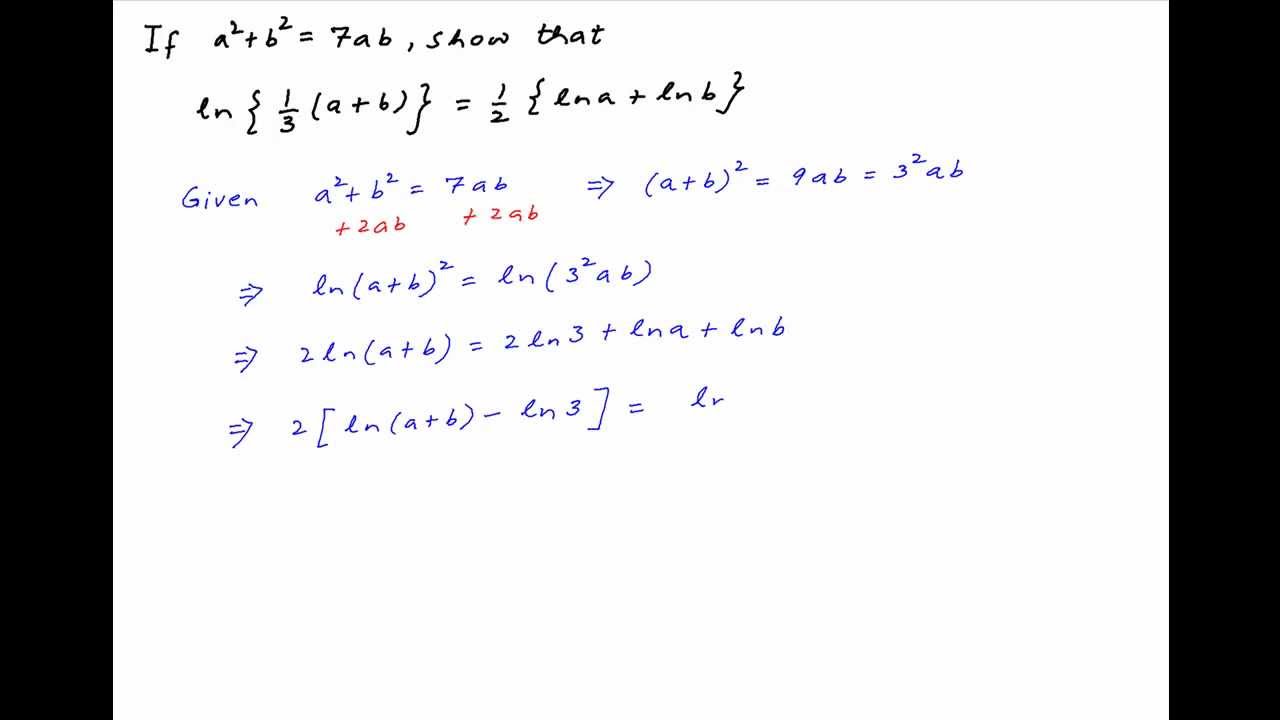 If a²+b² = 7ab, show that
ln{1/3 (a+b)} = 1/2 {ln a + ln b}
Given a²+b² = 7ab ⇒ (a+b)² = 9ab = 3²ab
+2ab +2ab
⇒ ln(a+b)² = ln(3²ab)
⇒ 2ln(a+b) = 2ln3 + lna + lnb
⇒ 2[ln(a+b) – ln3] = ln